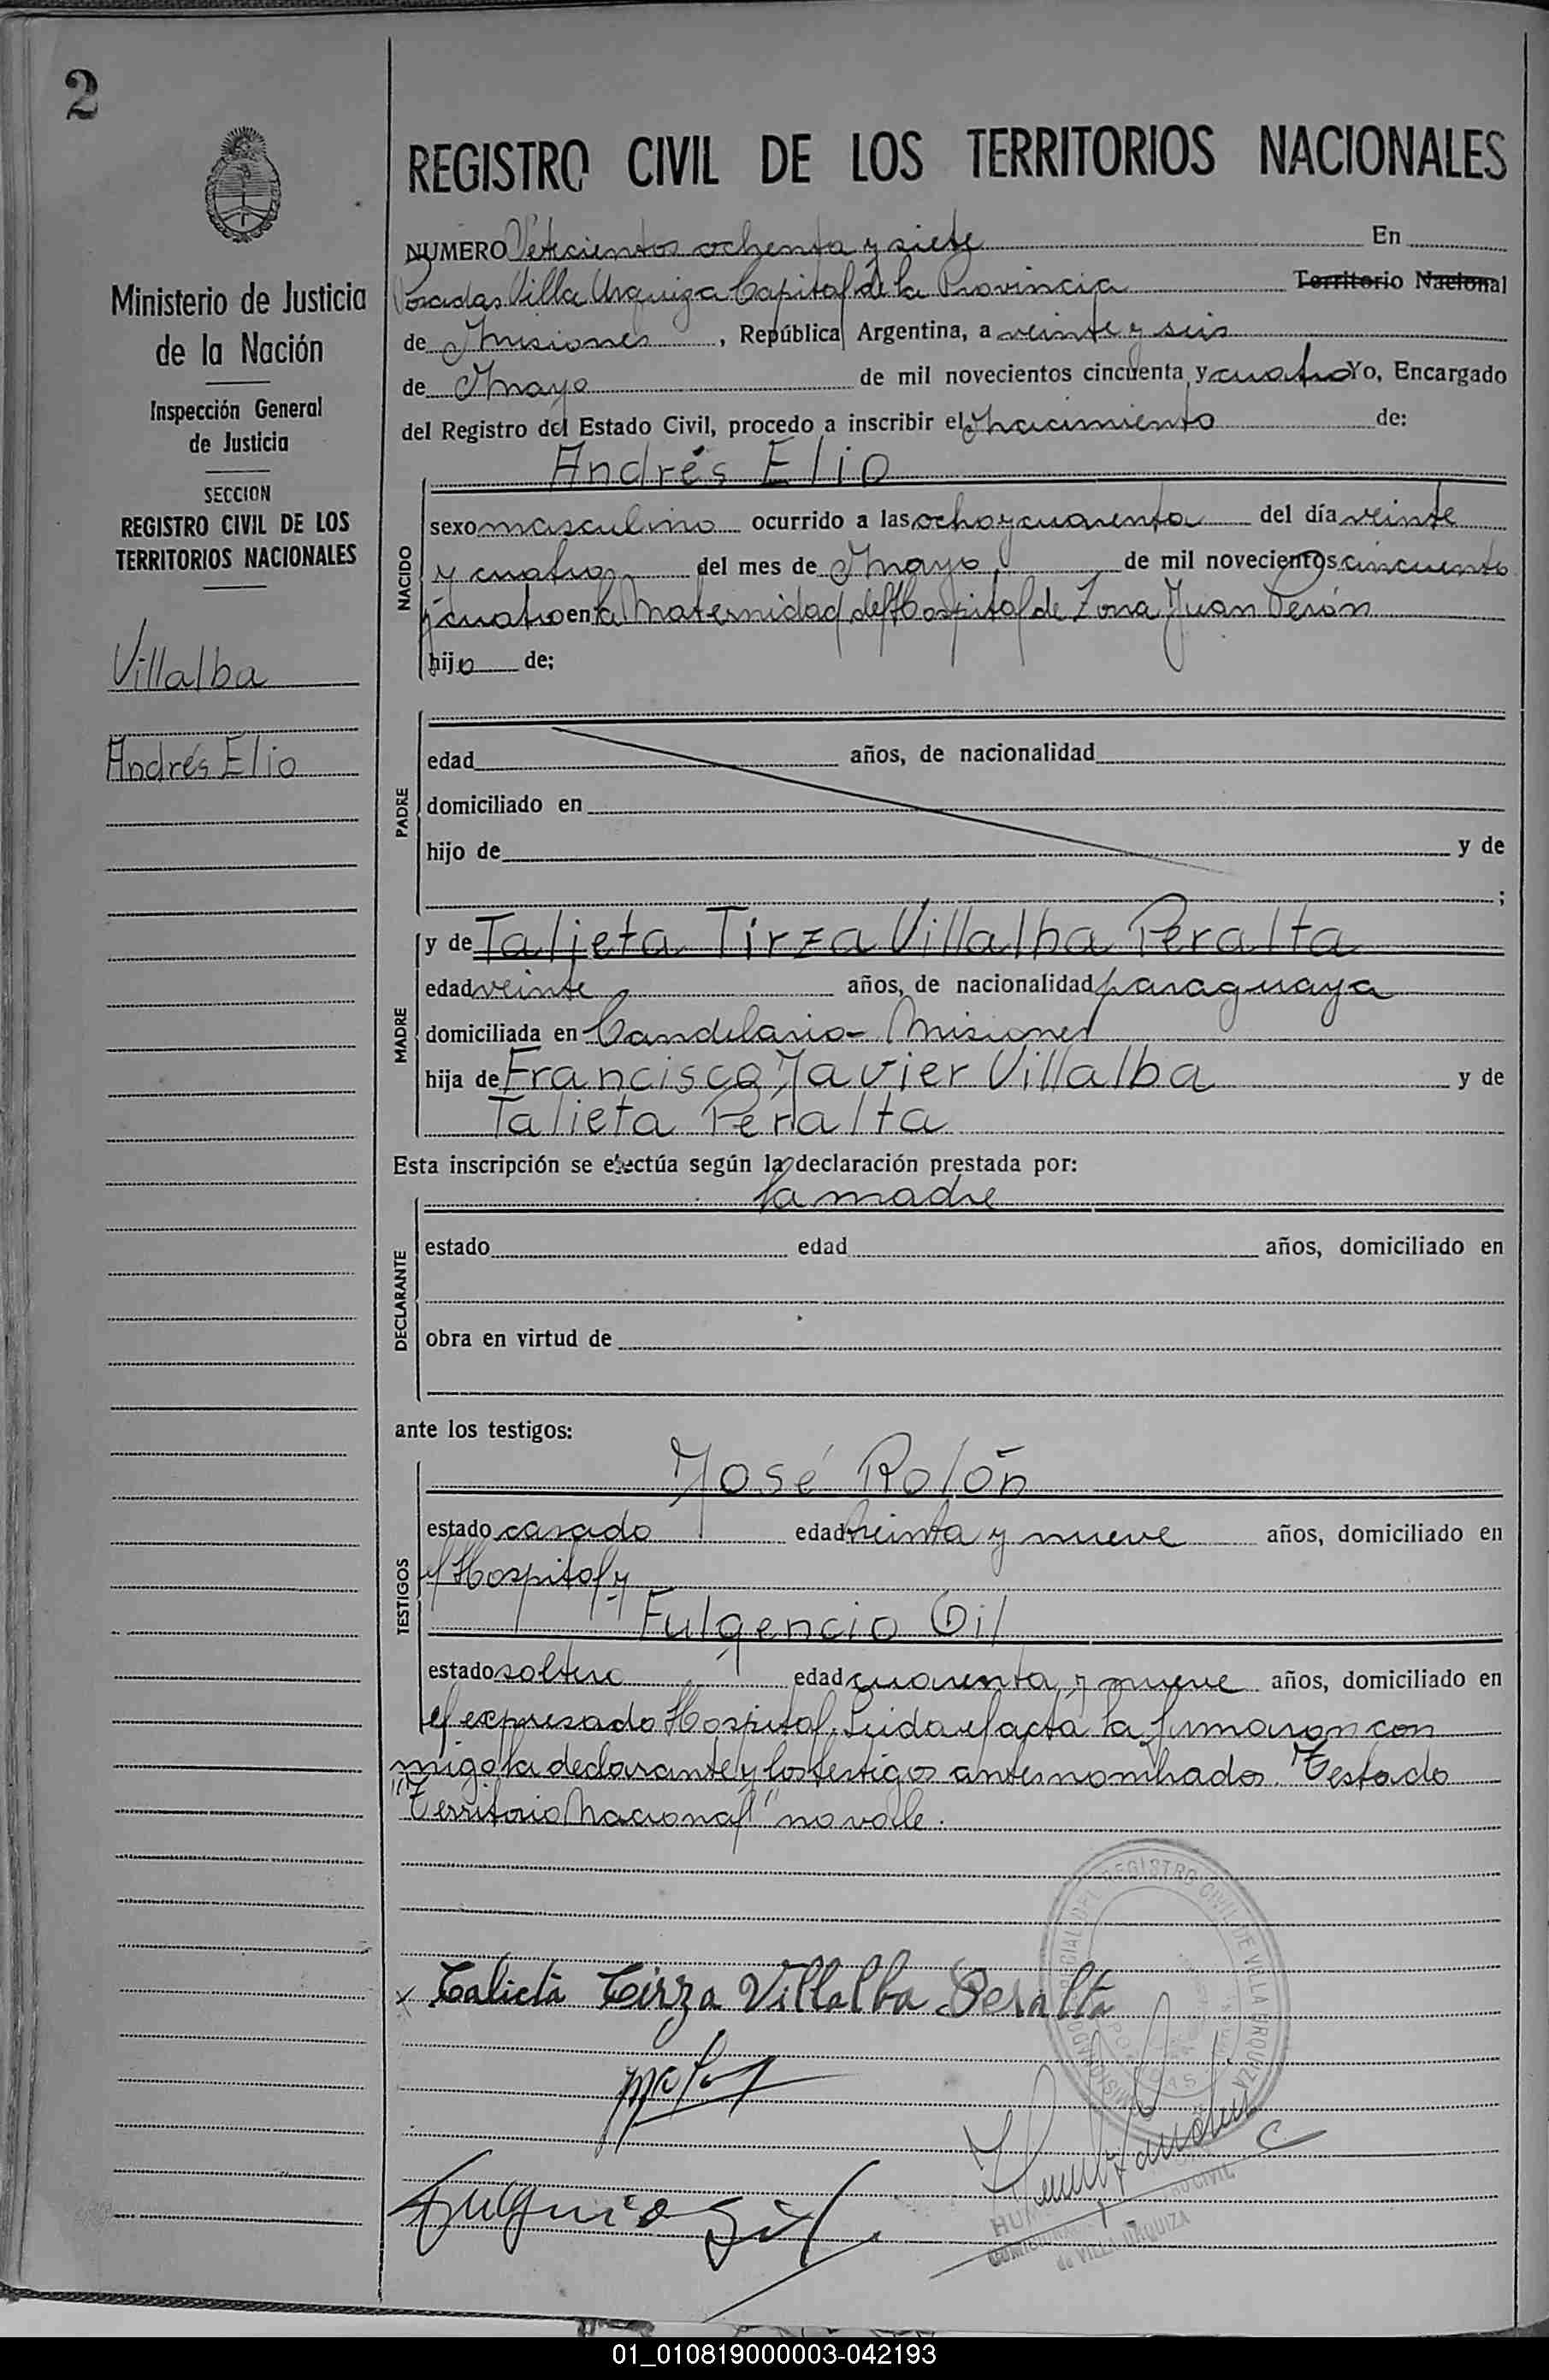 2
REGISTRO CIVIL DE LOS TERRITORIOS NACIONALES
Ministerio de Justicia
de la Nación
Inspección General
de Justicia
SECCION
REGISTRO CIVIL DE LOS
TERRITORIOS NACIONALES
Villalba
Andrés Elio
NUMERO Setecientos ochenta y siete En
Posadas Villa Urquiza Capital de la Provincia Territorio Nacional
de Misiones, República Argentina, a veinte y seis
de Mayo de mil novecientos cincuenta y cuatro Yo, Encargado
del Registro del Estado Civil, procedo a inscribir el Nacimiento de:
Andrés Elio
NACIDO
sexo masculino ocurrido a las ocho y cuarenta del día veinte
y cuatro del mes de Mayo de mil novecientos cincuenta
y cuatro en la Maternidad del Hospital de Zona Juan Perón
hijo de;
PADRE
edad años, de nacionalidad
domiciliado en
hijo de y de
;
MADRE
y de Talieta Tirza Villalba Peralta
edad veinte años, de nacionalidad paraguaya
domiciliada en Candelaria - Misiones
hija de Francisco Javier Villalba y de
Talieta Peralta
Esta inscripción se efectúa según la declaración prestada por:
la madre
DECLARANTE
estado edad años, domiciliado en
obra en virtud de
ante los testigos:
TESTIGOS
José Rolón
estado casado edad treinta y nueve años, domiciliado en
el Hospital y
Fulgencio Gil
estado soltero edad cuarenta y nueve años, domiciliado en
el expresado Hospital. Leida el acta la firmaron con
migo la declarante y los testigos antes nombrados. Testado
"Territorio Nacional" no vale.
x Talieta Tirza Villalba Peralta
Fulgencio Gil
REGISTRO CIVIL DE VILLA URQUIZA
POSADAS
de VILLA URQUIZA
01_010819000003-042193